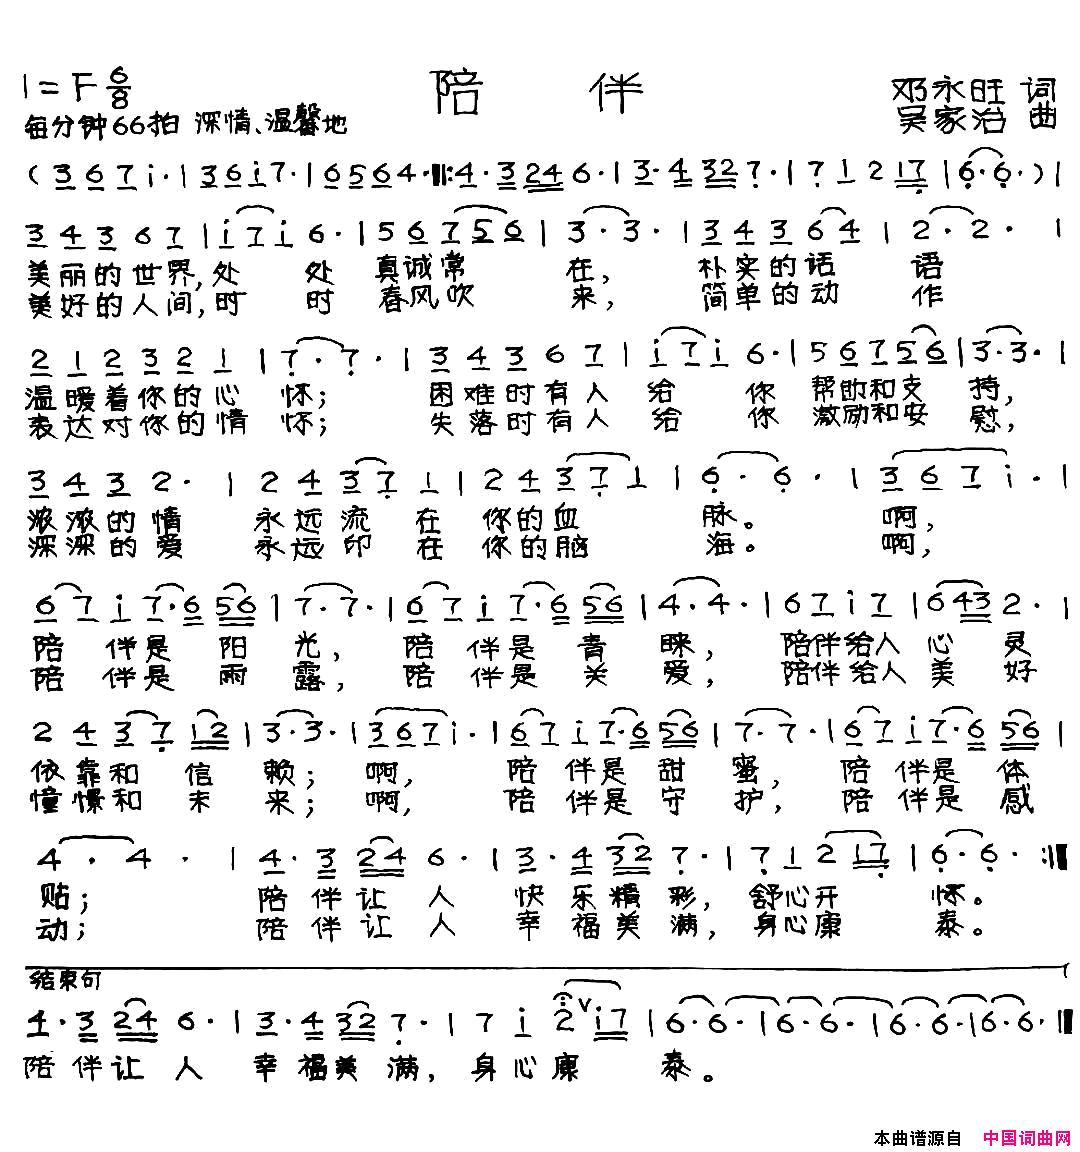 1=F 6/8 陪伴 邓永旺 词
每分钟66拍 深情、温馨地 吴家治 曲
( 3 6 7 i· | 3 6 i 7· | 6 5 6 4· ‖: 4· 3 2 4 6· | 3· 4 3 2 7· | 7 1 2 1 7 | 6· 6· ) |
3 4 3 6 7 | i 7 i 6· | 5 6 7 5 6 | 3· 3· | 3 4 3 6 4 | 2· 2· |
美丽的世界,处处真诚常在,朴实的话语
美好的人间,时时春风吹来,简单的动作
2 1 2 3 2 1 | 7· 7· | 3 4 3 6 7 | i 7 i 6· | 5 6 7 5 6 | 3· 3· |
温暖着你的心怀;困难时有人给你帮助和支持,
表达对你的情怀;失落时有人给你激励和安慰,
3 4 3 2· | 2 4 3 7 1 | 2 4 3 7 1 | 6· 6· | 3 6 7 i· |
浓浓的情永远流在你的血脉。啊,
深深的爱永远印在你的脑海。啊,
6 7 i 7· 6 5 6 | 7· 7· | 6 7 i 7· 6 5 6 | 4· 4· | 6 7 i 7 | 6 4 3 2· |
陪伴是阳光,陪伴是青睐,陪伴给人心灵
陪伴是雨露,陪伴是关爱,陪伴给人美好
2 4 3 7 1 2 | 3· 3· | 3 6 7 i· | 6 7 i 7· 6 5 6 | 7· 7· | 6 7 i 7· 6 5 6 |
依靠和信赖;啊,陪伴是甜蜜,陪伴是体
憧憬和未来;啊,陪伴是守护,陪伴是感
4· 4· | 4· 3 2 4 6· | 3· 4 3 2 7· | 7 1 2 1 7 | 6· 6· :‖
贴;陪伴让人快乐精彩,舒心开怀。
动;陪伴让人幸福美满,身心康泰。
结束句
4· 3 2 4 6· | 3· 4 3 2 7· | 7 i 2 V i 7 | 6· 6· | 6· 6· | 6· 6· | 6· 6· ‖
陪伴让人幸福美满,身心康泰。
本曲谱源自 中国词曲网